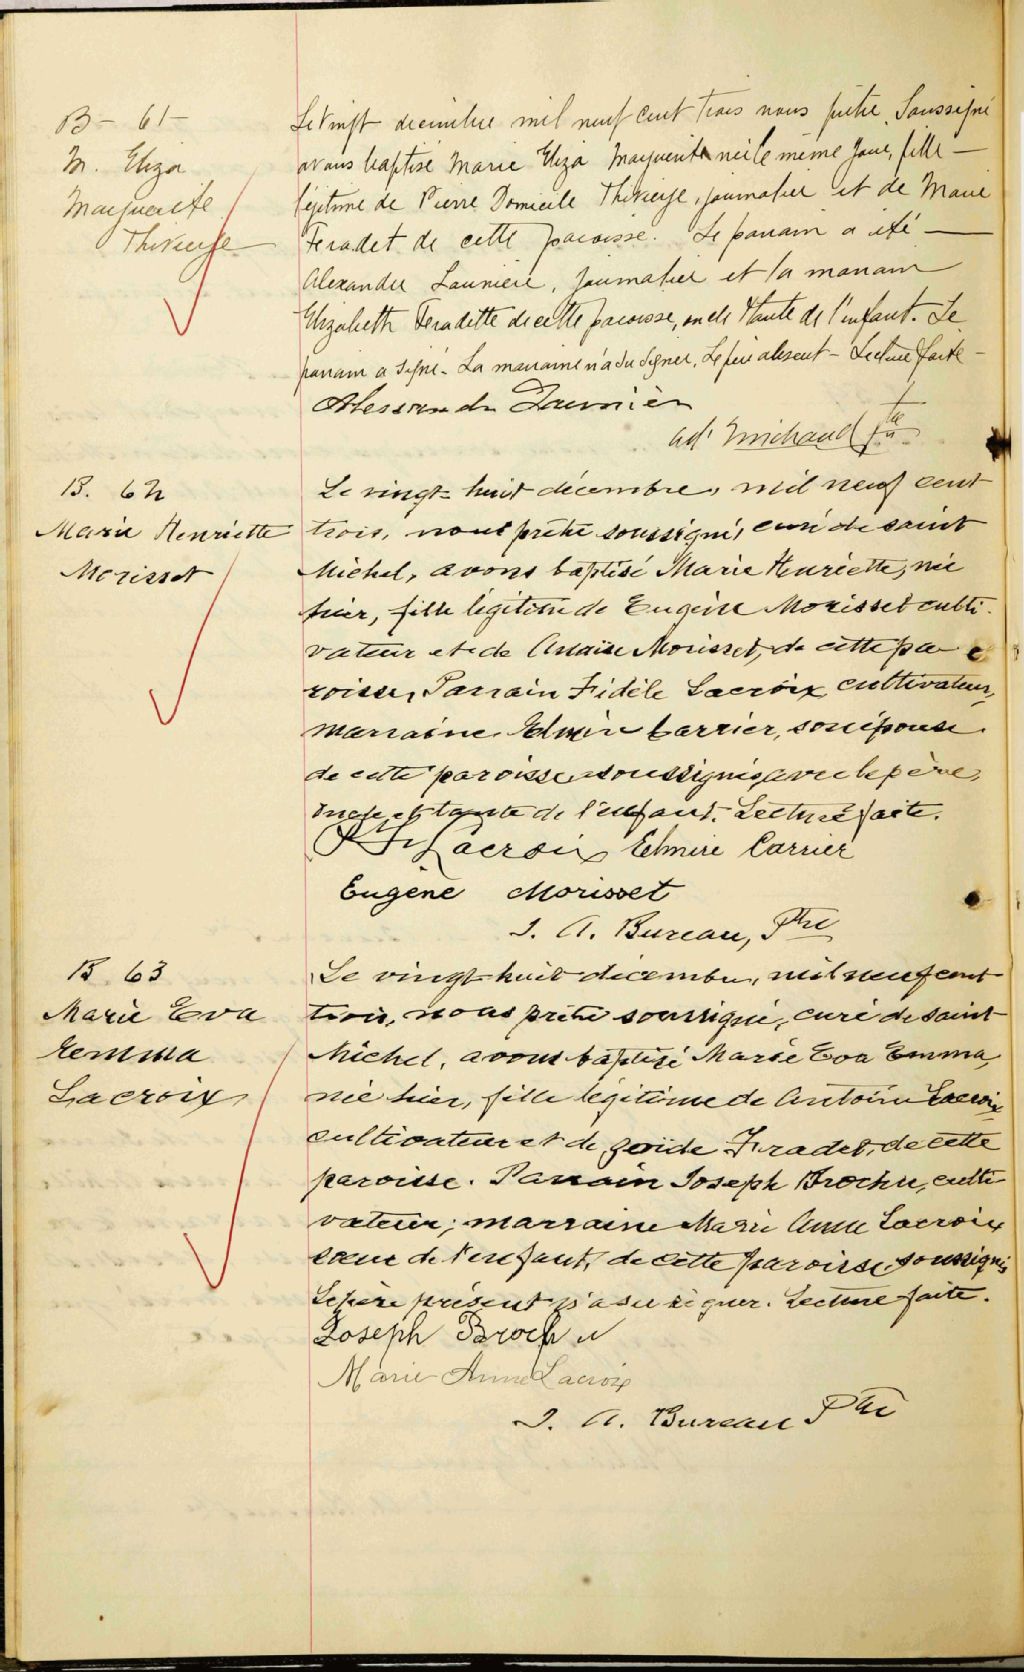 B - 61 -
M. Eliza
Marguerite
Thivierge
Le vingt décembre mil neuf cent trois nous prêtre soussigné
avons baptisé Marie Eliza Marguerite née le même jour, fille
légitime de Pierre Domicile Thivierge, journalier et de Marie
Feradet de cette paroisse. Le parrain a été
Alexandre Launière, journalier et la marraine
Elizabeth Feradette de cette paroisse, oncle & tante de l'enfant. Le
parrain a signé. La marraine n'a su signer. Le père absent - Lecture faite -
Alessandre Launièr
Ad. Michaud Ptre
B. 62
Marie Henriette
Morisset
Le vingt-huit décembre, mil neuf cent
trois, nous prêtre soussigné, curé de saint
Michel, avons baptisé Marie Henriette, née
hier, fille légitime de Eugène Morisset culti-
vateur et de Anaïse Morisset, de cette pa-
roisse, Parrain Fidèle Lacroix cultivateur,
marraine Elmire Carrier, son épouse
de cette paroisse soussignés avec le père,
oncle et tante de l'enfant. Lecture faite.
Lacroix Elmire Carrier
Eugène Morisset
J. A. Bureau, Ptre
B 63
Marie Eva
Emma
Lacroix
Le vingt-huit décembre, mil neuf cent
trois, nous prêtre soussigné, curé de saint
Michel, avons baptisé Marie Eva Emma,
née hier, fille légitime de Antoine Lacroix
cultivateur et de Zoïde Fradet, de cette
paroisse. Parrain Joseph Brochu, culti-
vateur; marraine Marie Anne Lacroix
sœur de l'enfant, de cette paroisse, soussignés
Le père présent n'a su signer. Lecture faite.
Joseph Brochu
Marie Anne Lacroix
J. A. Bureau Ptre